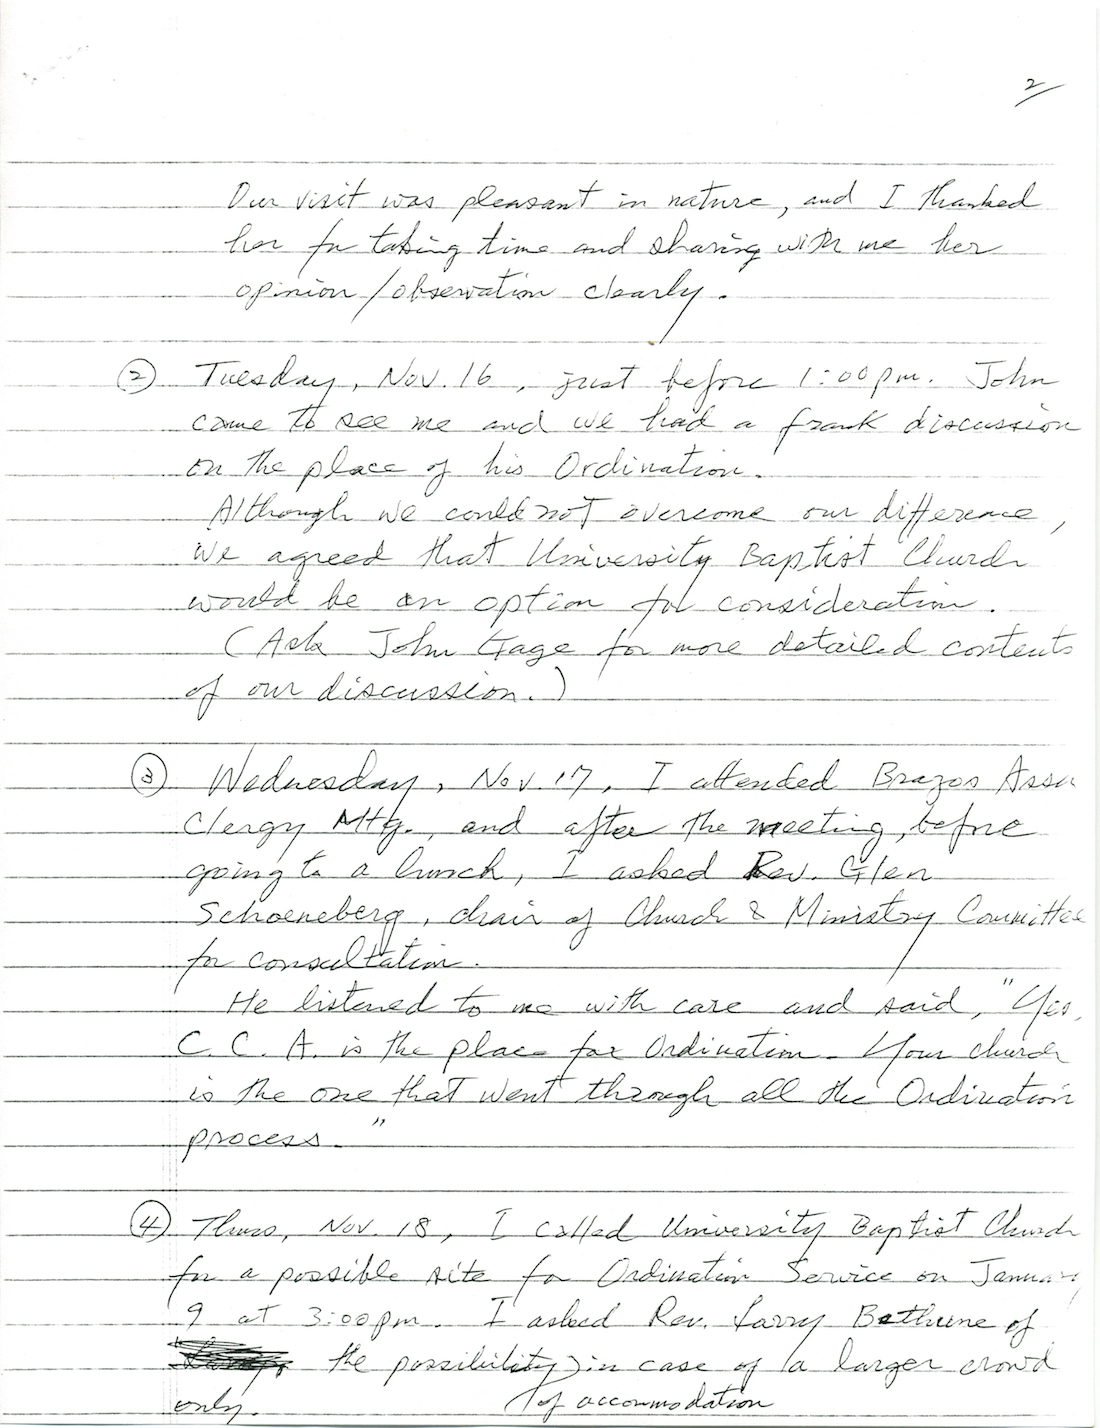 2
Our visit was pleasant in nature, and I thanked
her for taking time and sharing with me her
opinion/observation clearly.
② Tuesday, Nov. 16, just before 1:00 pm. John
came to see me and we had a frank discussion
on the place of his Ordination.
Although we could not overcome our difference,
we agreed that University Baptist Church
would be an option for consideration.
(Ask John Gage for more detailed contents
of our discussion.)
③ Wednesday, Nov. 17, I attended Brazos Assn
Clergy Mtg., and after the meeting, before
going to a lunch, I asked Rev. Glen
Schoeneberg, chair of Church & Ministry Committee
for consultation.
He listened to me with care and said, "Yes,
C. C. A. is the place for Ordination. Your church
is the one that went through all the Ordination
process."
④ Thurs, Nov. 18, I called University Baptist Church
for a possible site for Ordination Service on January
9 at 3:00 pm. I asked Rev. Larry Bethune of
the possibility in case of a larger crowd
only. of accommodation